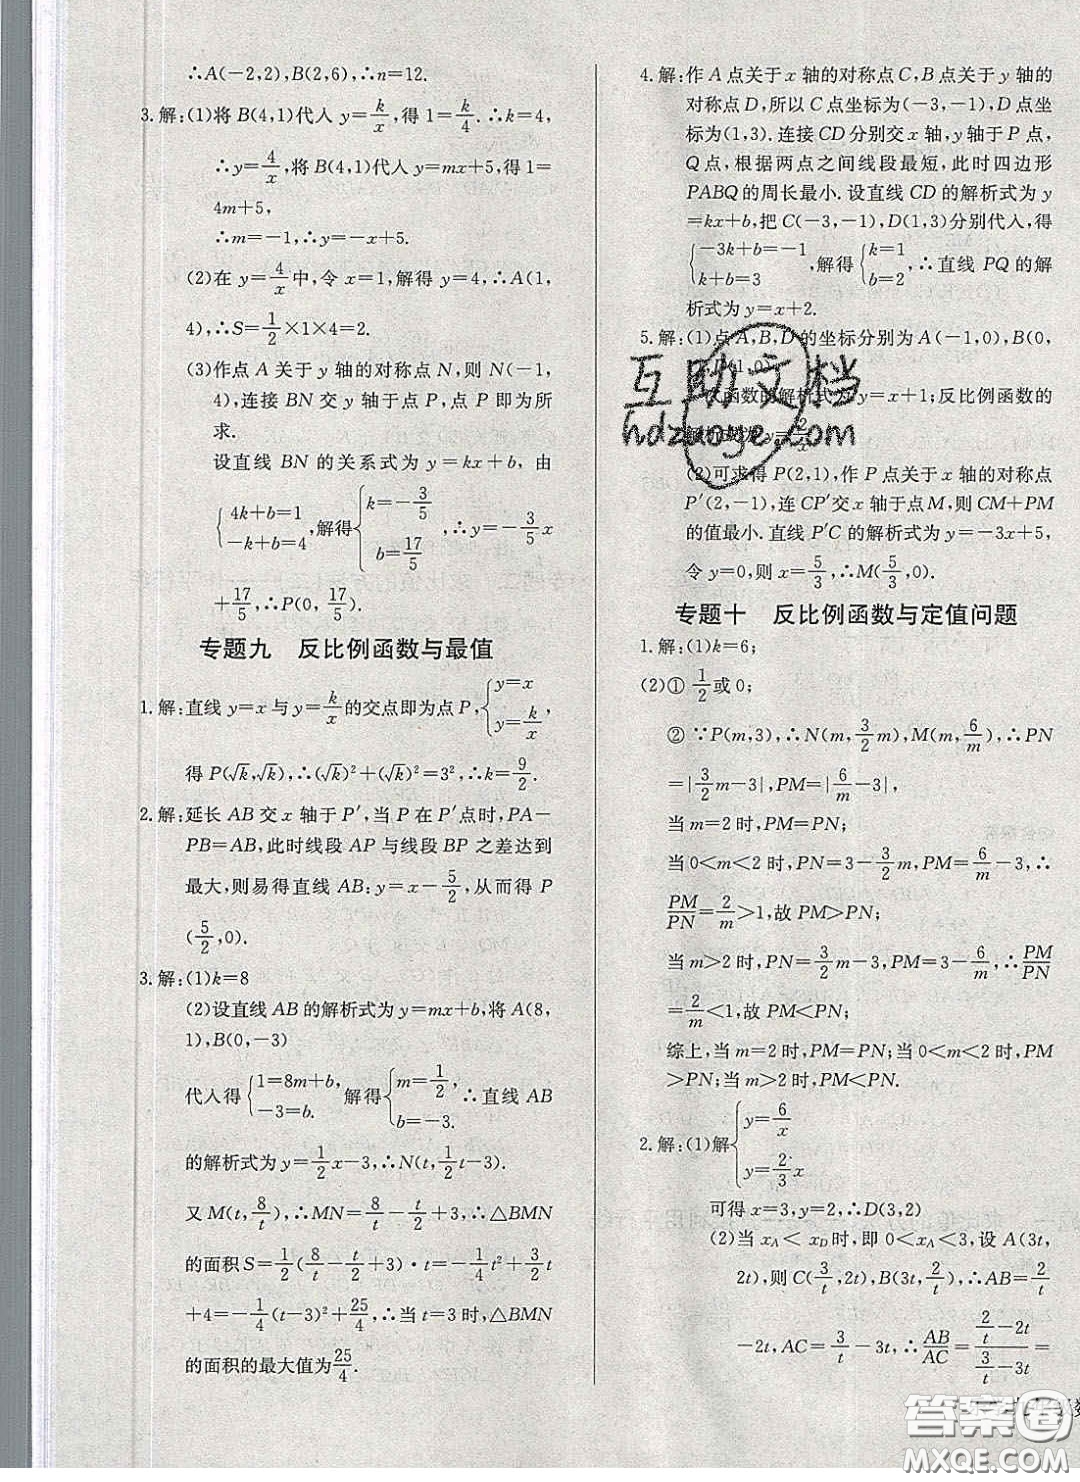 ∴A(-2,2),B(2,6),∴n=12.
3.解:(1)将B(4,1)代入y=k/x,得1=k/4.∴k=4,
∴y=4/x,将B(4,1)代入y=mx+5,得1=
4m+5,
∴m=-1,∴y=-x+5.
(2)在y=4/x中,令x=1,解得y=4,∴A(1,
4),∴S=1/2×1×4=2.
(3)作点A关于y轴的对称点N,则N(-1,
4),连接BN交y轴于点P,点P即为所
求.
设直线BN的关系式为y=kx+b,由
{4k+b=1 -k+b=4,解得{k=-3/5 b=17/5,∴y=-3/5x
+17/5,∴P(0,17/5).
专题九 反比例函数与最值
1.解:直线y=x与y=k/x的交点即为点P,{y=x y=k/x,
得P(√k,√k),∴(√k)²+(√k)²=3²,∴k=9/2.
2.解:延长AB交x轴于P′,当P在P′点时,PA-
PB=AB,此时线段AP与线段BP之差达到
最大,则易得直线AB:y=x-5/2,从而得P
(5/2,0).
3.解:(1)k=8
(2)设直线AB的解析式为y=mx+b,将A(8,
1),B(0,-3)
代入得{1=8m+b, -3=b. 解得{m=1/2, b=-3. ∴直线AB
的解析式为y=1/2x-3,∴N(t,1/2t-3).
又M(t,8/t),∴MN=8/t-t/2+3,∴△BMN
的面积S=1/2(8/t-t/2+3)·t=-1/4t²+3/2t
+4=-1/4(t-3)²+25/4,∴当t=3时,△BMN
的面积的最大值为25/4.
4.解:作A点关于x轴的对称点C,B点关于y轴的
对称点D,所以C点坐标为(-3,-1),D点坐
标为(1,3).连接CD分别交x轴,y轴于P点,
Q点,根据两点之间线段最短,此时四边形
PABQ的周长最小.设直线CD的解析式为y
=kx+b,把C(-3,-1),D(1,3)分别代入,得
{-3k+b=-1 k+b=3,解得{k=1 b=2,∴直线PQ的解
析式为y=x+2.
5.解:(1)点A,B,D的坐标分别为A(-1,0),B(0,
D(1,0)
函数的解析式为y=x+1;反比例函数的
y=2/x
(2)可求得P(2,1),作P点关于x轴的对称点
P′(2,-1),连CP′交x轴于点M,则CM+PM
的值最小.直线P′C的解析式为y=-3x+5,
令y=0,则x=5/3,∴M(5/3,0).
专题十 反比例函数与定值问题
1.解:(1)k=6;
(2)①1/2或0;
②∵P(m,3),∴N(m,3/2m),M(m,6/m),∴PN
=|3/2m-3|,PM=|6/m-3|,
当m=2时,PM=PN;
当0<m<2时,PN=3-3/2m,PM=6/m-3,∴
PM/PN=2/m>1,故PM>PN;
当m>2时,PN=3/2m-3,PM=3-6/m,∴PM/PN
=2/m<1,故PM<PN;
综上,当m=2时,PM=PN;当0<m<2时,PM
>PN;当m>2时,PM<PN.
2.解:(1)解{y=6/x y=2/3x
可得x=3,y=2,∴D(3,2)
(2)当x_A<x_D时,即0<x_A<3,设A(3t,
2t),则C(3/t,2t),B(3t,2/t),∴AB=2/t
-2t,AC=3/t-3t,∴AB/AC=(2/t-2t)/(3/t-3t)=
互助文档
hdzuoye.com
答案圈
MXQE.COM